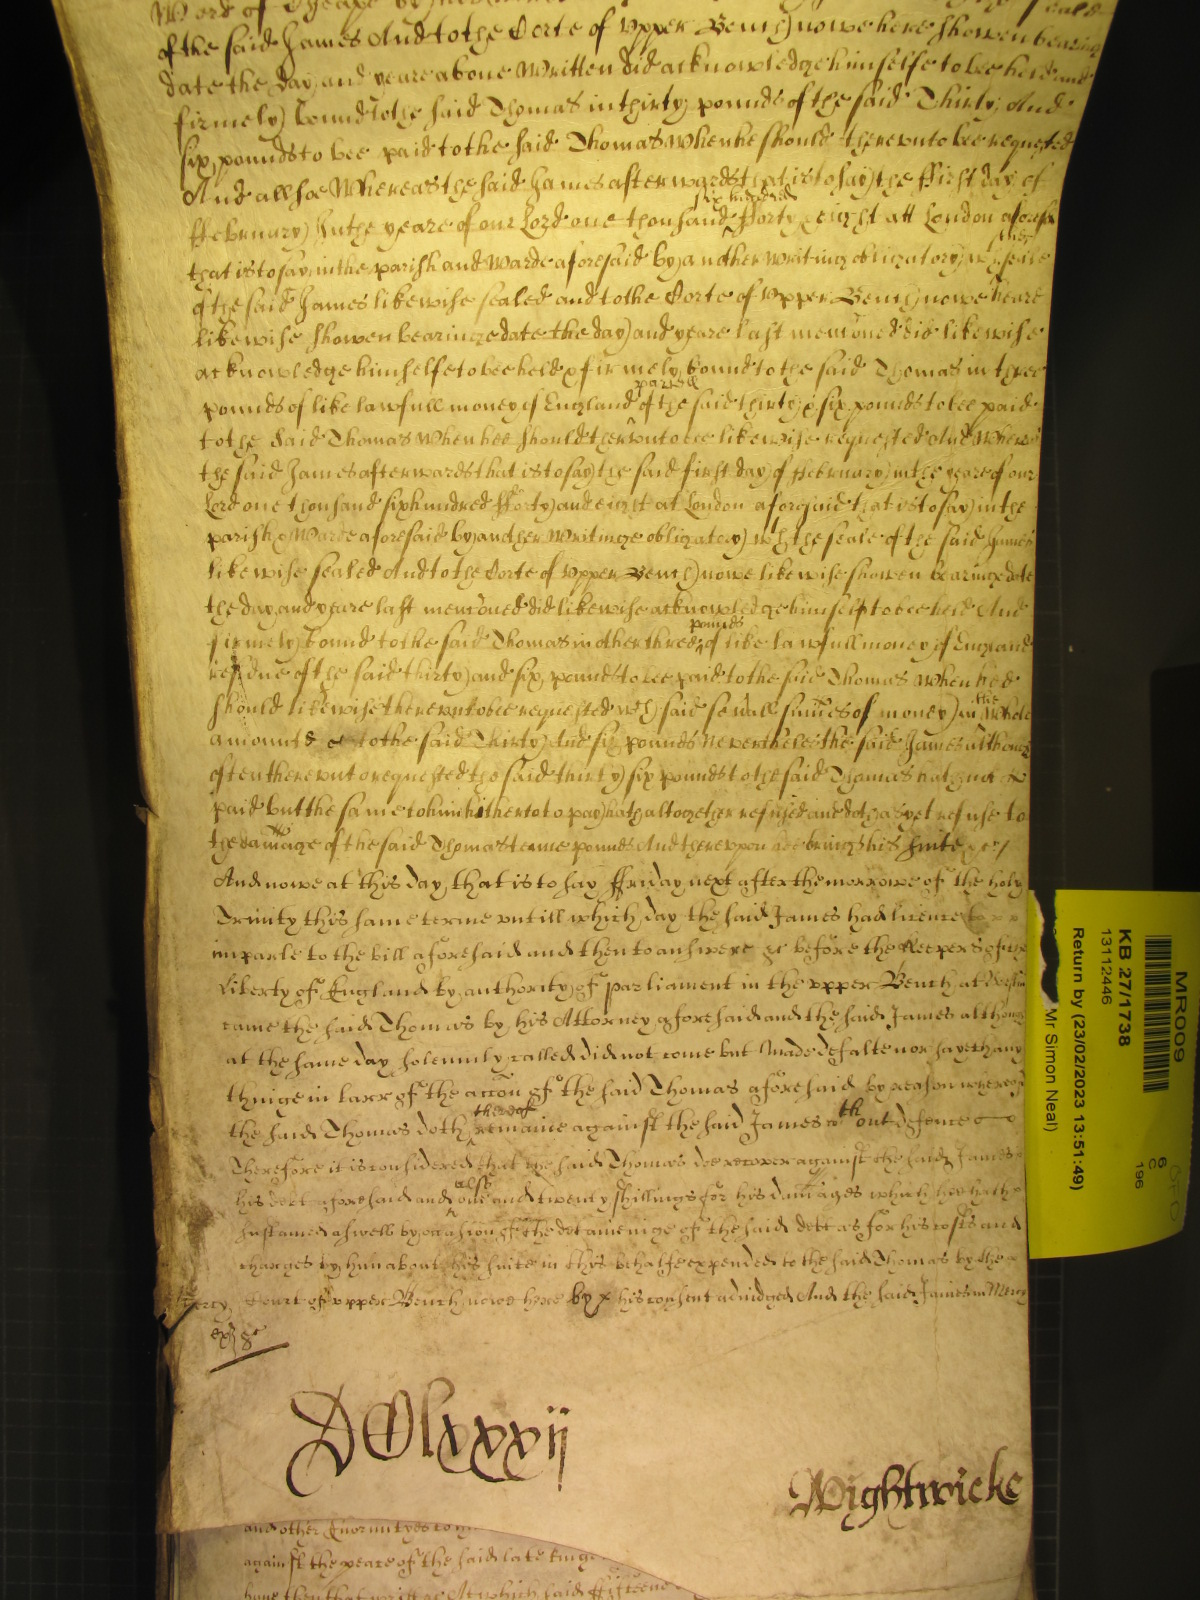 Ward of Cheape by
of the said James And to the Corte of Upper Bench nowe here showen bearing
date the day and yeare above written did acknowledge himselfe to bee held and
firmely bound to the said Thomas in thirty pounds of the said Thirty And
six pounds to bee paid to the said Thomas when he should therevnto bee requested
And allsoe Whereas the said James afterwards that is to say the ffirst day of
ffebruary In the yeare of our Lord one thousand six hundred fforty & eight att London aforesd
that is to say in the parish and Warde aforesaid by another writing obligatory wth the seale
of the said James likewise sealed and to the Corte of Upper Bench nowe heare
likewise showen bearinge date the day and yeare last menconed did likewise
acknowledge himselfe to bee held & firmely bound to the said Thomas in three
pounds of like lawfull money of England parcell of the said thirty & six pounds to bee paid
to the said Thomas when hee should therevnto bee likewise requested And Where
the said James afterwards that is to say the said first day of ffebruary in the yeare of our
Lord one thousand six hundred fforty and eight at London aforesaid that is to say in the
parish & Warde aforesaid by another Writinge obligatory wth the seale of the said James
likewise sealed And to the Corte of Upper Bench nowe likewise showen bearinge date
the day and yeare last menconed did likewise acknowledge himself to bee held And
firmely bound to the said Thomas in other three pounds of like lawfull money of England
residue of the said thirty and six pounds to bee paid to the said Thomas when hee
should likewise therevnto bee requested wch said severall summes of money in the whole
amounte to the said Thirty And six pounds Neverthelesse the said James although
often therevnto requested the said thirty six pounds to the said Thomas hath not
paid but the same to him hitherto to pay hath altogether refused and doth as yet refuse to
the damage of the said Thomas tenne pounds And therevpon hee brings his suite &c
And nowe at this day that is to say ffriday next after the morrowe of the holy
Trinity this same terme vntill which day the said James had licence to
imparle to the bill aforesaid and then to answere &c before the Keepers of the
Liberty of England by authority of parliament in the vpper Bench at Westm
came the said Thomas by his Attorney aforesaid and the said James although
at the same day solemnly called did not come but Made defalte nor sayeth any
thinge in barr of the accon of the said Thomas aforesaid by reason whereof
the said Thomas doth thereof remaine against the said James wth out defence
Therefore it is considered that the said Thomas doe recover against the said James
his debt aforesaid and alsoe one and twenty shillings for his damages which hee hath
sustained aswell by occasion of the detaineinge of the said debt as for his costs and
charges by him about his suite in this behalfe expended to the said Thomas by the
Mercy Court of vpper Bench nowe here by his consent adiudged And the said James in Mercy
&c
DClxxxij
Wightwicke
and other Enormityes
against the peace of the said late king
haue then that writt &c At which said fifteene
MR009
KB 27/1738
13112446
Return by (23/02/2023 13:51:49)
Mr Simon Neal)
6
C
196